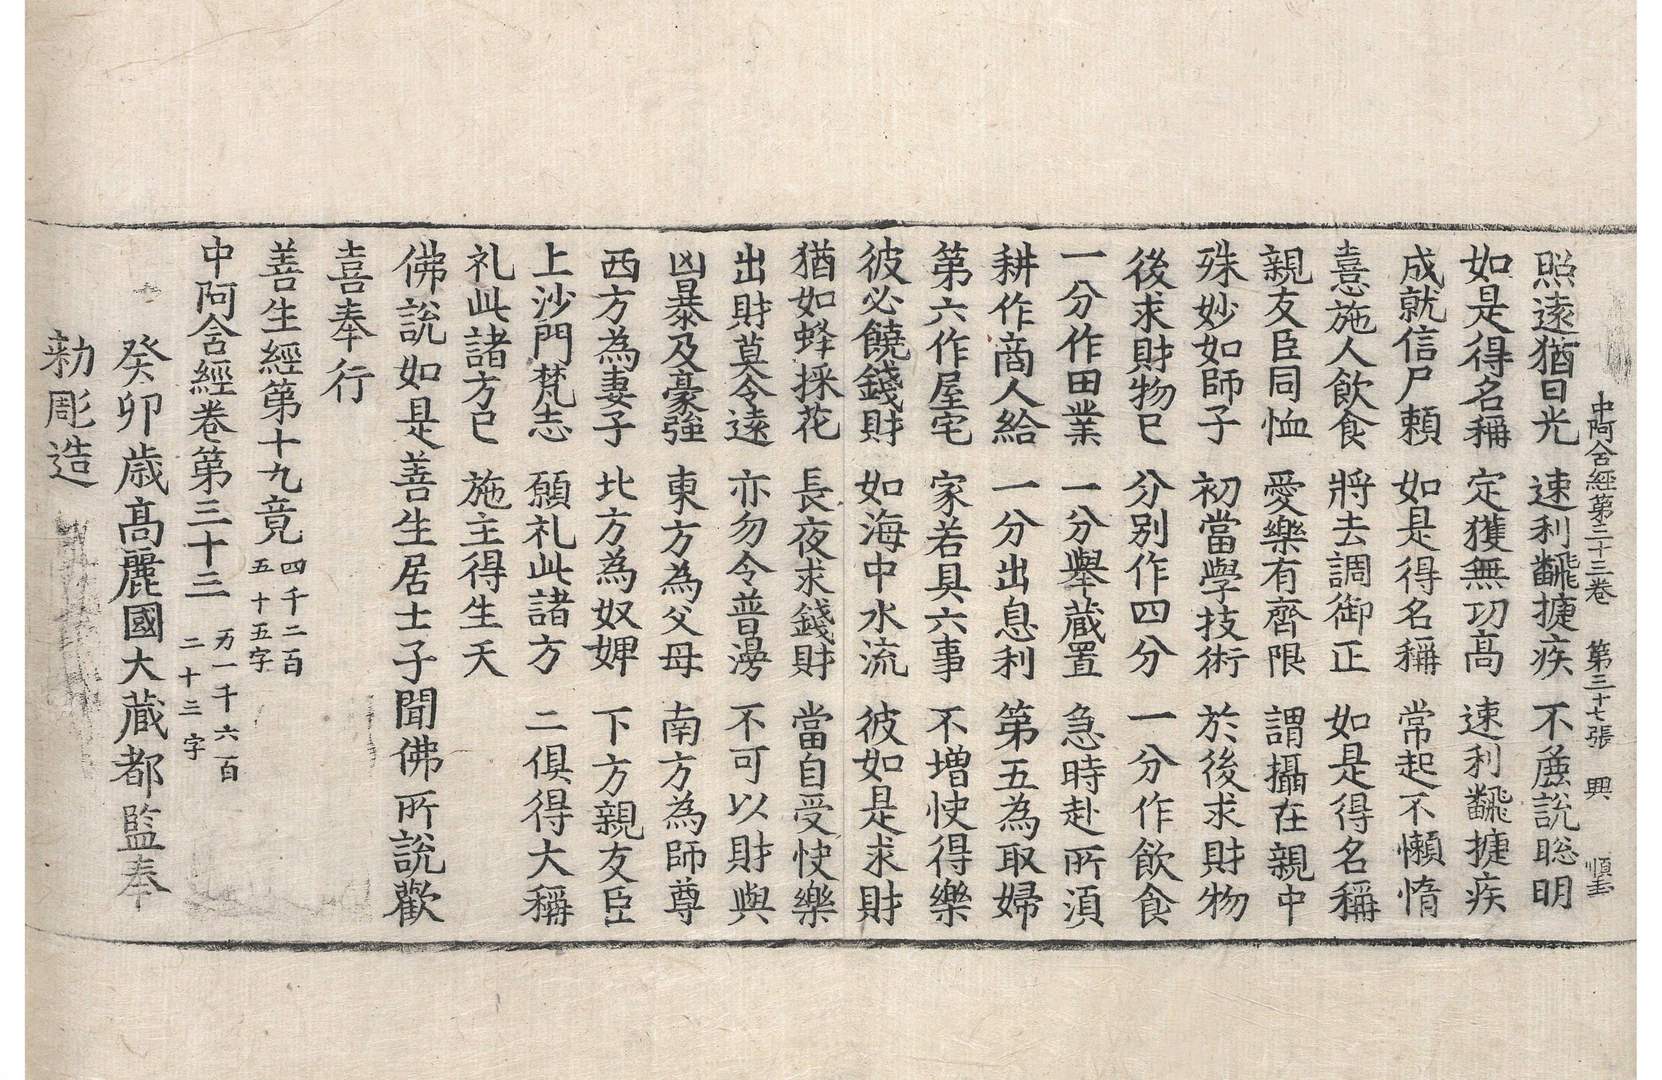 中阿含經第三十三卷 第三十七張 興
照遠猶日光 速利翻揵疾 不麁說聡明
如是得名稱 定獲無功高 速利翻揵疾
成就信尸賴 如是得名稱 常起不懶惰
憙施人飲食 將去調御正 如是得名稱
親友臣同恤 愛樂有齊限 謂攝在親中
殊妙如師子 初當學技術 於後求財物
後求財物已 分別作四分 一分作飲食
一分作田業 一分舉藏置 急時赴所湏
耕作商人給 一分出息利 第五為取婦
第六作屋宅 家若具六事 不增快得樂
彼必饒錢財 如海中水流 彼如是求財
猶如蜂採花 長夜求錢財 當自受快樂
出財莫令遠 亦勿令普漫 不可以財與
凶暴及豪強 東方為父母 南方為師尊
西方為妻子 北方為奴婢 下方親友臣
上沙門梵志 願礼此諸方 二俱得大稱
礼此諸方已 施主得生天
佛說如是善生居士子聞佛所說歡
喜奉行
善生經第十九竟 四千二百
五十五字
中阿含經卷第三十三 万一千六百
二十三字
癸卯歳高麗國大藏都監奉
勑彫造